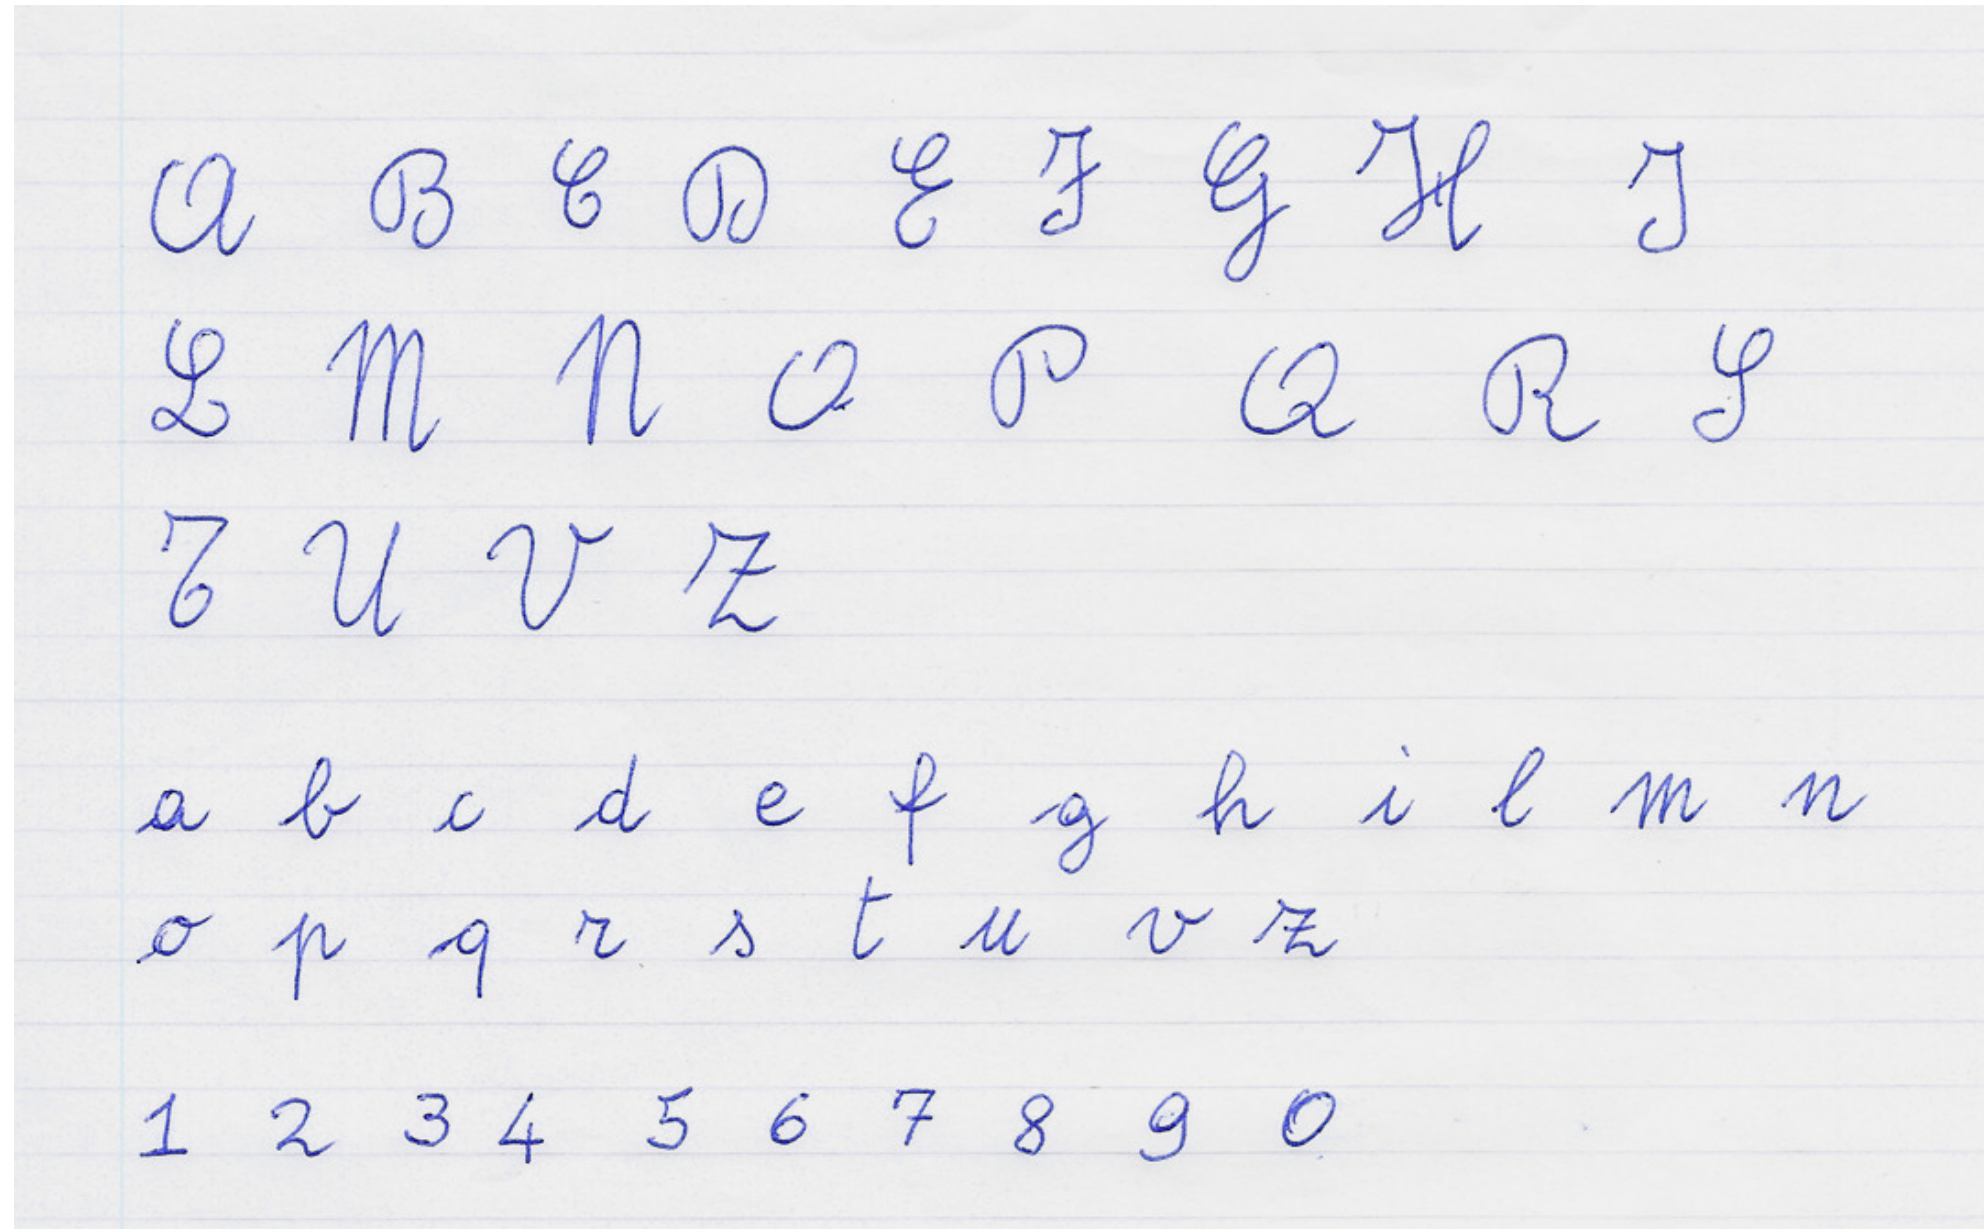 A B C D E F G H I
L M N O P Q R S
T U V Z
a b c d e f g h i l m n
o p q r s t u v z
1 2 3 4 5 6 7 8 9 0